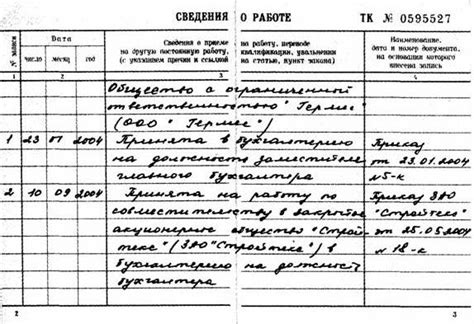 СВЕДЕНИЯ О РАБОТЕ ТК № 0595527
№ записи
Дата
число месяц год
Сведения о приеме на работу, переводе
на другую постоянную работу, квалификации, увольнении
(с указанием причин и ссылкой на статью, пункт закона)
Наименование,
дата и номер документа,
на основании которого
внесена запись
1 2 3 4
Общество с ограниченной
ответственностью "Гермес"
(ООО "Гермес")
1 23 01 2004 Принята в бухгалтерию Приказ
на должность заместителя от 23.01.2004
главного бухгалтера №5-к
2 10 09 2004 Принята на работу по Приказ ЗАО
совместительству в закрытое "Стройтекс"
акционерное общество "Строй- от 25.05.2004
текс" (ЗАО "Стройтекс") в №18-к
бухгалтерию на должность
бухгалтера
2 3